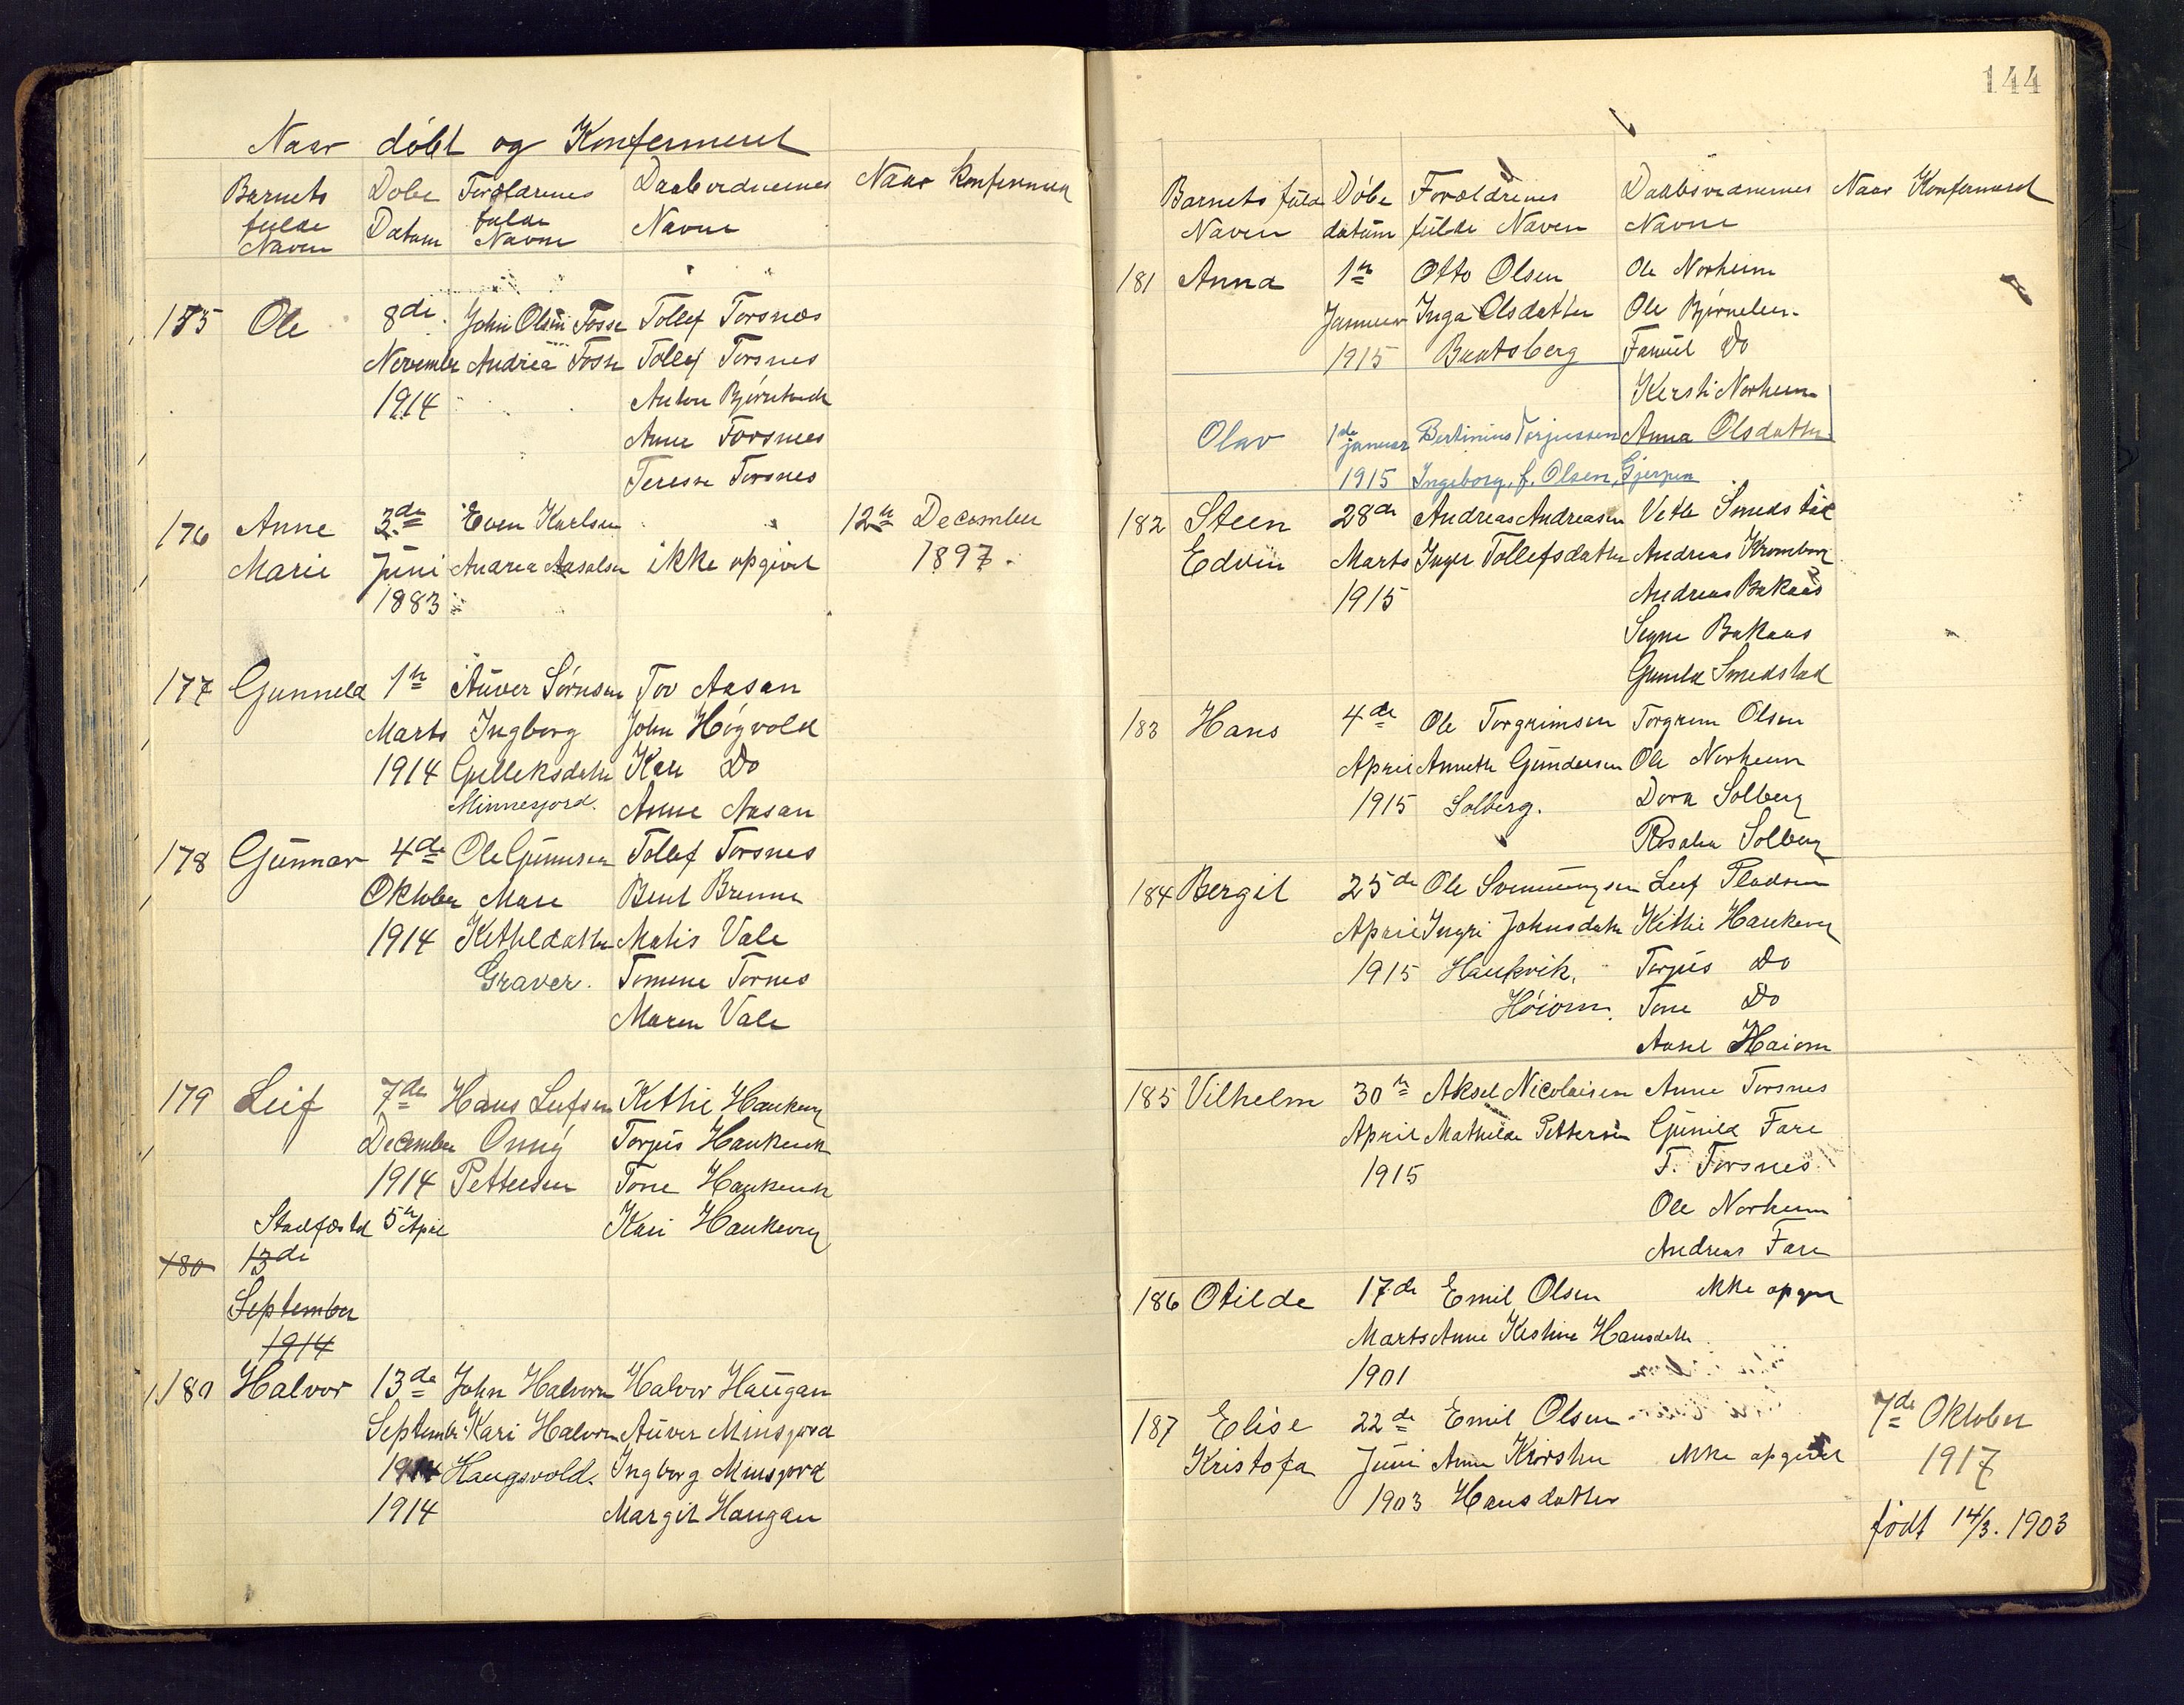 Naar döbt og Konfermeret
Barnets Döbe Forældrenes Daabvidnernes Naar Konfermer
fulde Datum fulde Navne
Navn Navne
155 Ole 8de John Olsen Fosse Tollef Torsnes
November Andrea Fosse Tollef Torsnes
1914 Anton
Anne Torsnes
Terese Torsnes
176 Anne 3de Even Karlsen 12te December
Marie Juni Andrea ikke opgivet 1897.
1883
177 Gunneld 1te Auver Sörnsen Tov Aasan
Marts Ingborg John Högvold
1914 Gulleksdatter Kari Do
Minnesjord. Anne Aasan
178 Gunnar 4de Ole Gunnersen Tollef Torsnes
Oktober Mare Bent Brenne
1914 Ketheldatter Matis Vale
Graver. Tomine Tornes
Maren Vale
179 Leif 7de Hans Leifsen Kethil Haukevig
December Onny Torjus Haukevik
1914 Pettersen Tone Haukevik
Stadfæstd 5te April Kari Haukevig
180 13de
September
1914
180 Halvor 13de John Halvorsen Halvor Haugan
September Kari Halvorsen Auver Minsjord
1914 Haugsvold. Ingborg Minsjord
1914 Margit Haugan
144
Barnets fulde Döbe Forældrenes Daabsvidnernes Naar Konfermeret
Navn datum fulde Navn Navne
181 Anna 1te Otto Olsen Ole Norheim
Januar Inga Olsdatter Ole
1915 Baatsberg Do
Kersti Norheim
Olav 1de januar Bertinius Torjussen Anna Olsdatter
1915 Ingeborg, f. Olsen, Gjerpen
182 Steen 28de Andreas Andreasen Vetle Smedstad
Edvin Marts Inger Tollefsdatter Andreas Kromborg
1915 Andreas Bakaas
Signe Bakaas
Gunild Smedstad
183 Hans 4de Ole Torgrimsen Torgrim Olsen
April Annethe Gundersen Ole Norheim
1915 Solberg. Dora Solberg
Rosalia Solberg
184 Bergit 25de Ole Svenningsen Leif Pladsen
April Ingri Johnsdatter Kethil Haukevig
1915 Haukvik. Torjus Do
Höiorm. Tone Do
Aasel Haiorm
185 Vilhelm 30te Aksel Nicolaisen Anne Torsnes
April Mathilde Pettersen Gunild Fare
1915 T. Torsnes
Ole Norheim
Andreas Fare
186 Otilde 17de Emil Olsen ikke opgivet
Marts Anne Kestine Hansdatter
1901
187 Elise 22de Emil Olsen 7de Oktober
Kristofa Juni Anne Kirstine ikke opgivet 1917
1903 Hansdatter
født 14/3. 1903